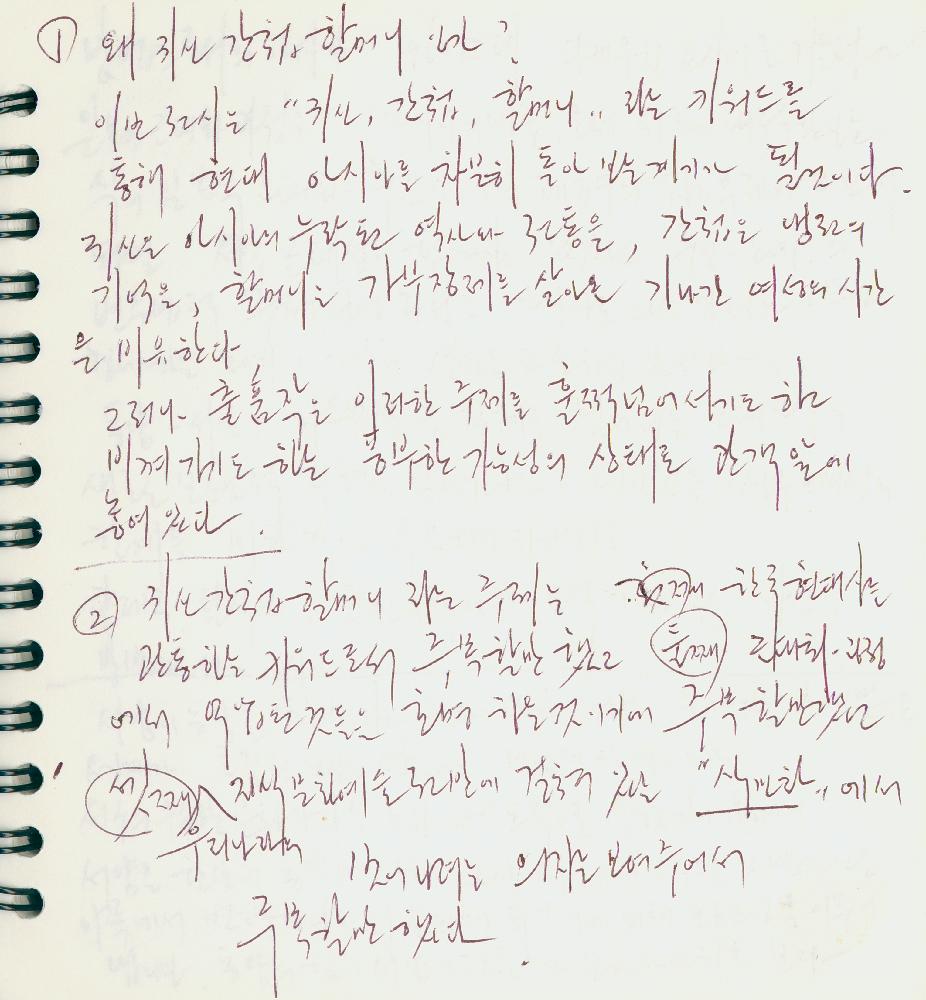 ① 왜 귀신 간첩 할머니 인가?
이번 전시는 "귀신, 간첩, 할머니" 라는 키워드를
통해 현대 아시아를 차분히 돌아 보는 계기가 될것이다.
귀신은 아시아의 누락된 역사와 전통을, 간첩은 냉전의
기억을, 할머니는 가부장제를 살아온 기나긴 여성의 시간
을 비유한다
그러나 출품작은 이러한 주제를 훌쩍 넘어서기도 하고
비껴가기도 하는 풍부한 가능성의 상태로 관객 앞에
놓여 있다.
② 귀신 간첩 할머니 라는 주제는 첫째 한국현대사를
관통하는 키워드로서 주목할만 했고 둘째 근대화 과정
에서 억압된것들을 호명 하는것이기에 주목할만했고
셋째 지식 문화예술 전반에 걸쳐 있는 "식민화" 에서
우리나라가
벗어나려는 의지를 보여주어서
주목할만 했다.